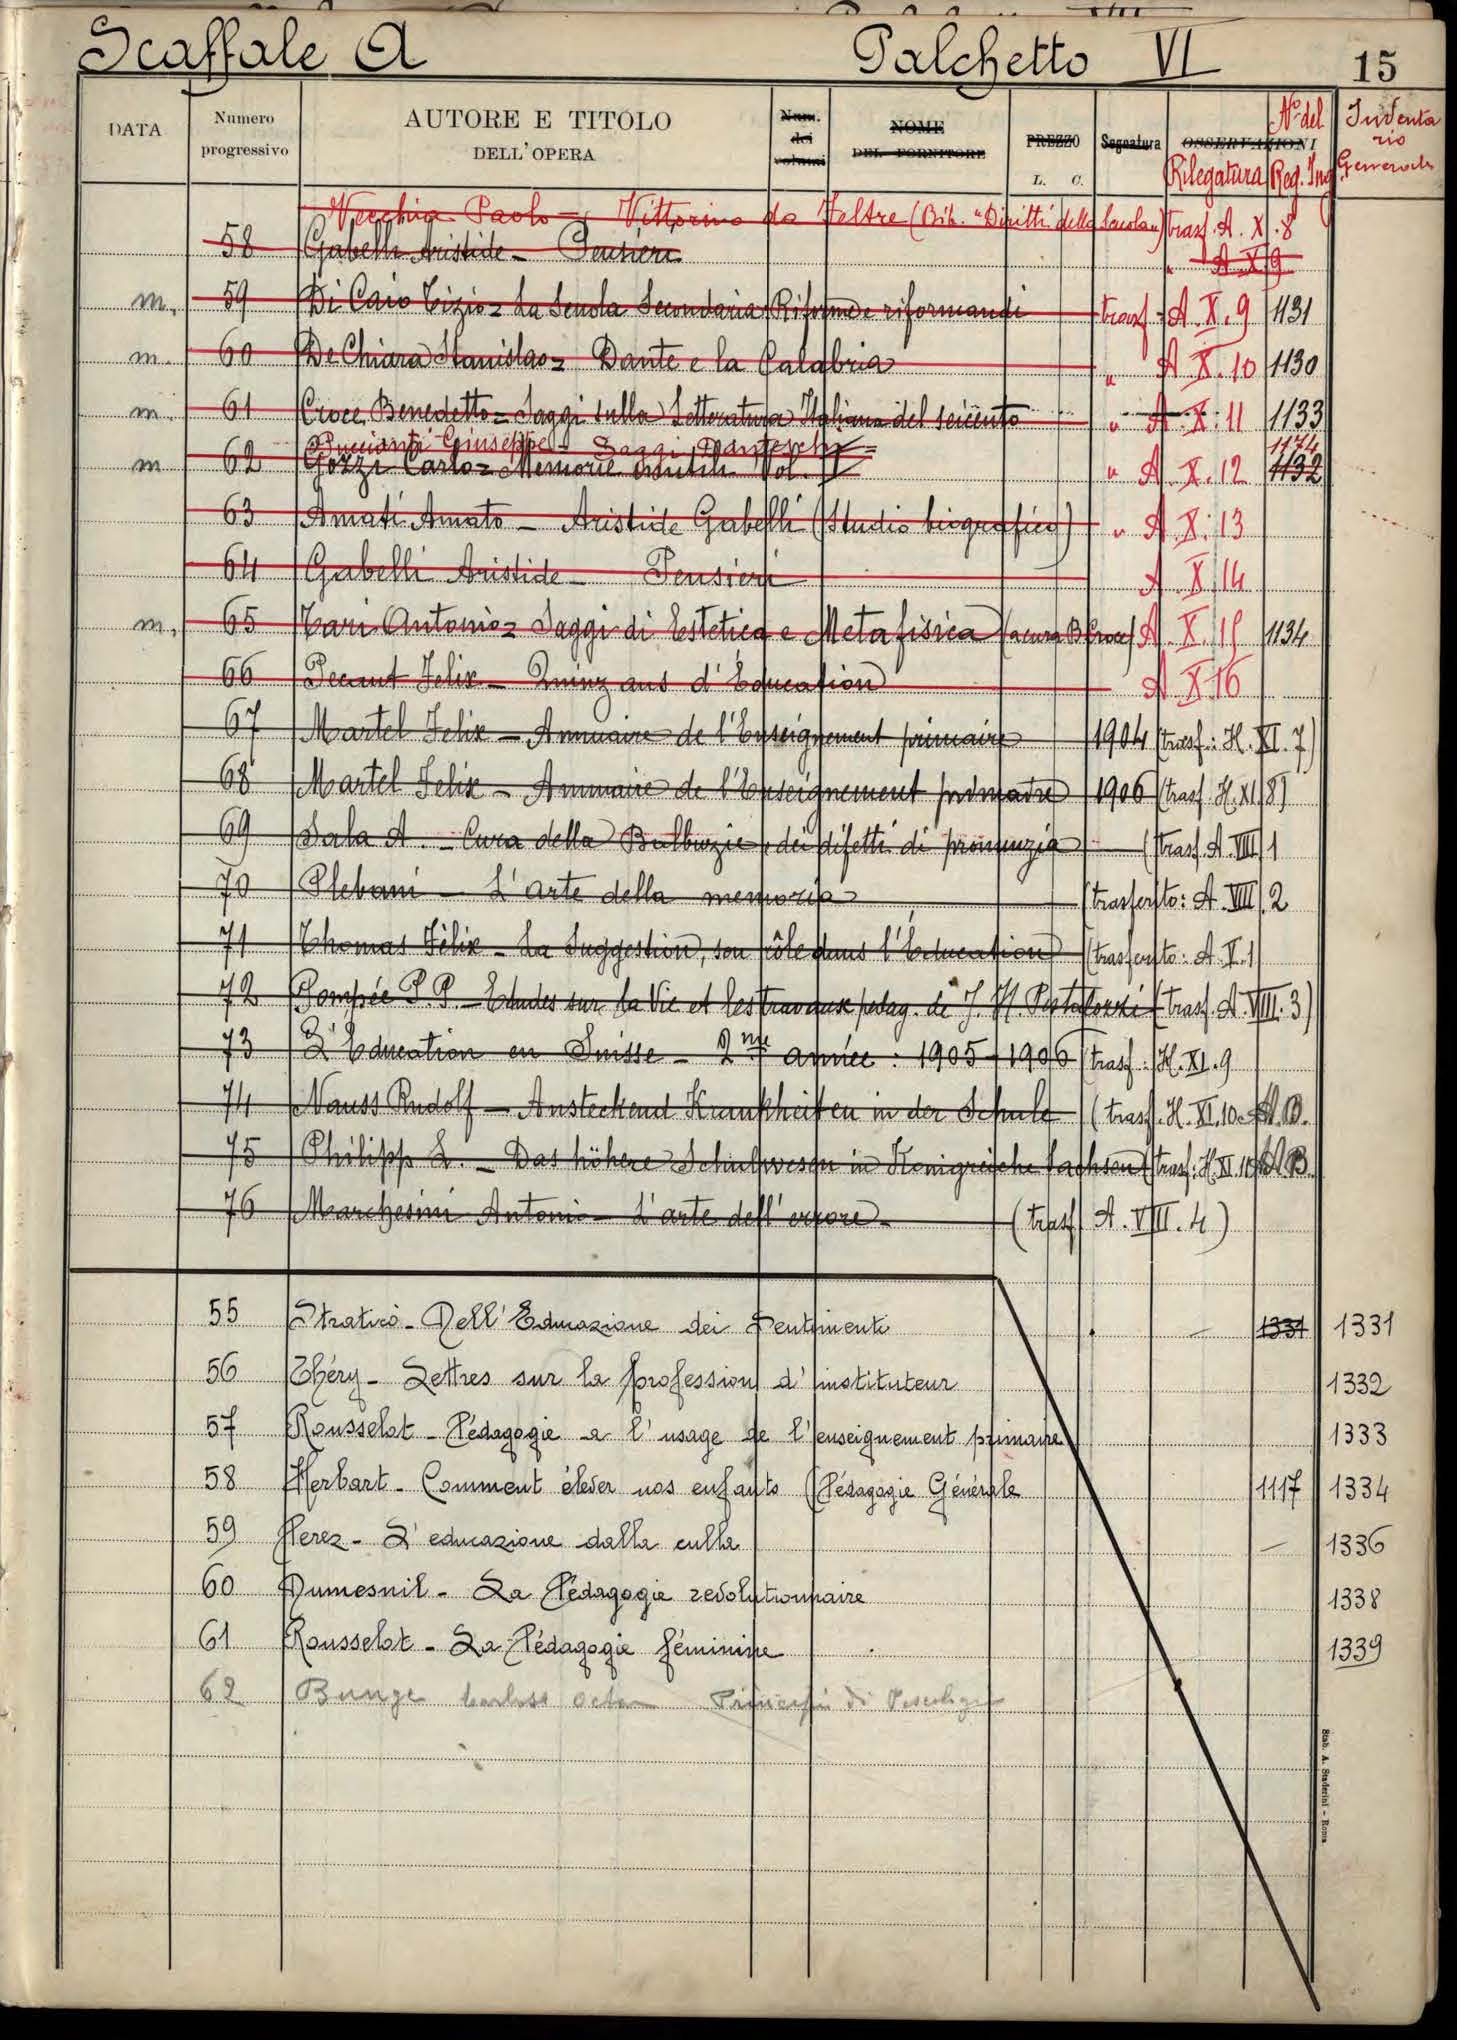 Scaffale A Palchetto VI 15
DATA Numero progressivo AUTORE E TITOLO DELL'OPERA Num. dei volumi NOME DEL FORNITORE PREZZO L. C. Segnatura OSSERVAZIONI Rilegatura N° del Reg. Ing. Inventario Generale
Vecchia Paolo - Vittorino da Feltre (Bib. "Diritti della Scuola") trasf. A. X. 8
58 Gabelli Aristide - Pensieri " A X 9
m. 59 Di Caio Tizio = La Scuola Secondaria Riforme e riformandi trasf. A. X. 9 1131
m. 60 De Chiara Stanislao = Dante e la Calabria " A X. 10 1130
m. 61 Croce Benedetto = Saggi sulla Letteratura Italiana del seicento " A. X. 11 1133
Puccianti Giuseppe - Saggi Danteschi = 1174
m 62 Gozzi Carlo = Memorie inutili Vol. " A X. 12 1132
63 Amati Amato - Aristide Gabelli (Studio biografico) " A X. 13
64 Gabelli Aristide - Pensieri A X 14
m. 65 Tari Antonio = Saggi di Estetica e Metafisica (a cura B. Croce) A. X. 15 1134
66 Pecaut Felix - Quinz ans d'Education A X 16
67 Martel Felix - Annuaire de l'Enseignement primaire 1904 (trasf.: H. XI. 7)
68 Martel Felix - Annuaire de l'Enseignement primaire 1906 (trasf. H. XI. 8)
69 Sala A. - Cura della Balbuzie, dei difetti di pronunzia (trasf. A. VIII 1
70 Plebani - L'arte della memoria (trasferito: A. VIII. 2
71 Thomas Félix - La Suggestion, son rôle dans l'Éducation (trasferito: A. V. 1
72 Pompée P. P. - Etudes sur la Vie et les travaux pedag. de J. H. Pestalozzi (trasf. A. VIII. 3)
73 L'Education en Suisse - 2me année: 1905-1906 (trasf.: H. XI. 9
74 Nauss Rudolf - Ansteckend Krankheiten in der Schule (trasf. H. XI. 10 A. B.
75 Philipp L. - Das höhere Schulwesen in Konigreiche Sachsen (trasf: H. XI. 11 A. B.
76 Marchesini Antonio - L'arte dell'errore - (trasf A. VIII. 4)
55 Straticò - Dell'Educazione dei Sentimenti 1331 1331
56 Théry - Lettres sur la profession d'instituteur 1332
57 Rousselot - Pédagogie a l'usage de l'enseignement primaire 1333
58 Herbart - Comment élever nos enfants (Pédagogie Générale 1117 1334
59 Perez - L'educazione dalla culla 1336
60 Dumesnil - La Pédagogie revolutionnaire 1338
61 Rousselot - La Pédagogie féminine 1339
62 Bunge Principii di Psicologia
Stab. A. Staderini - Roma